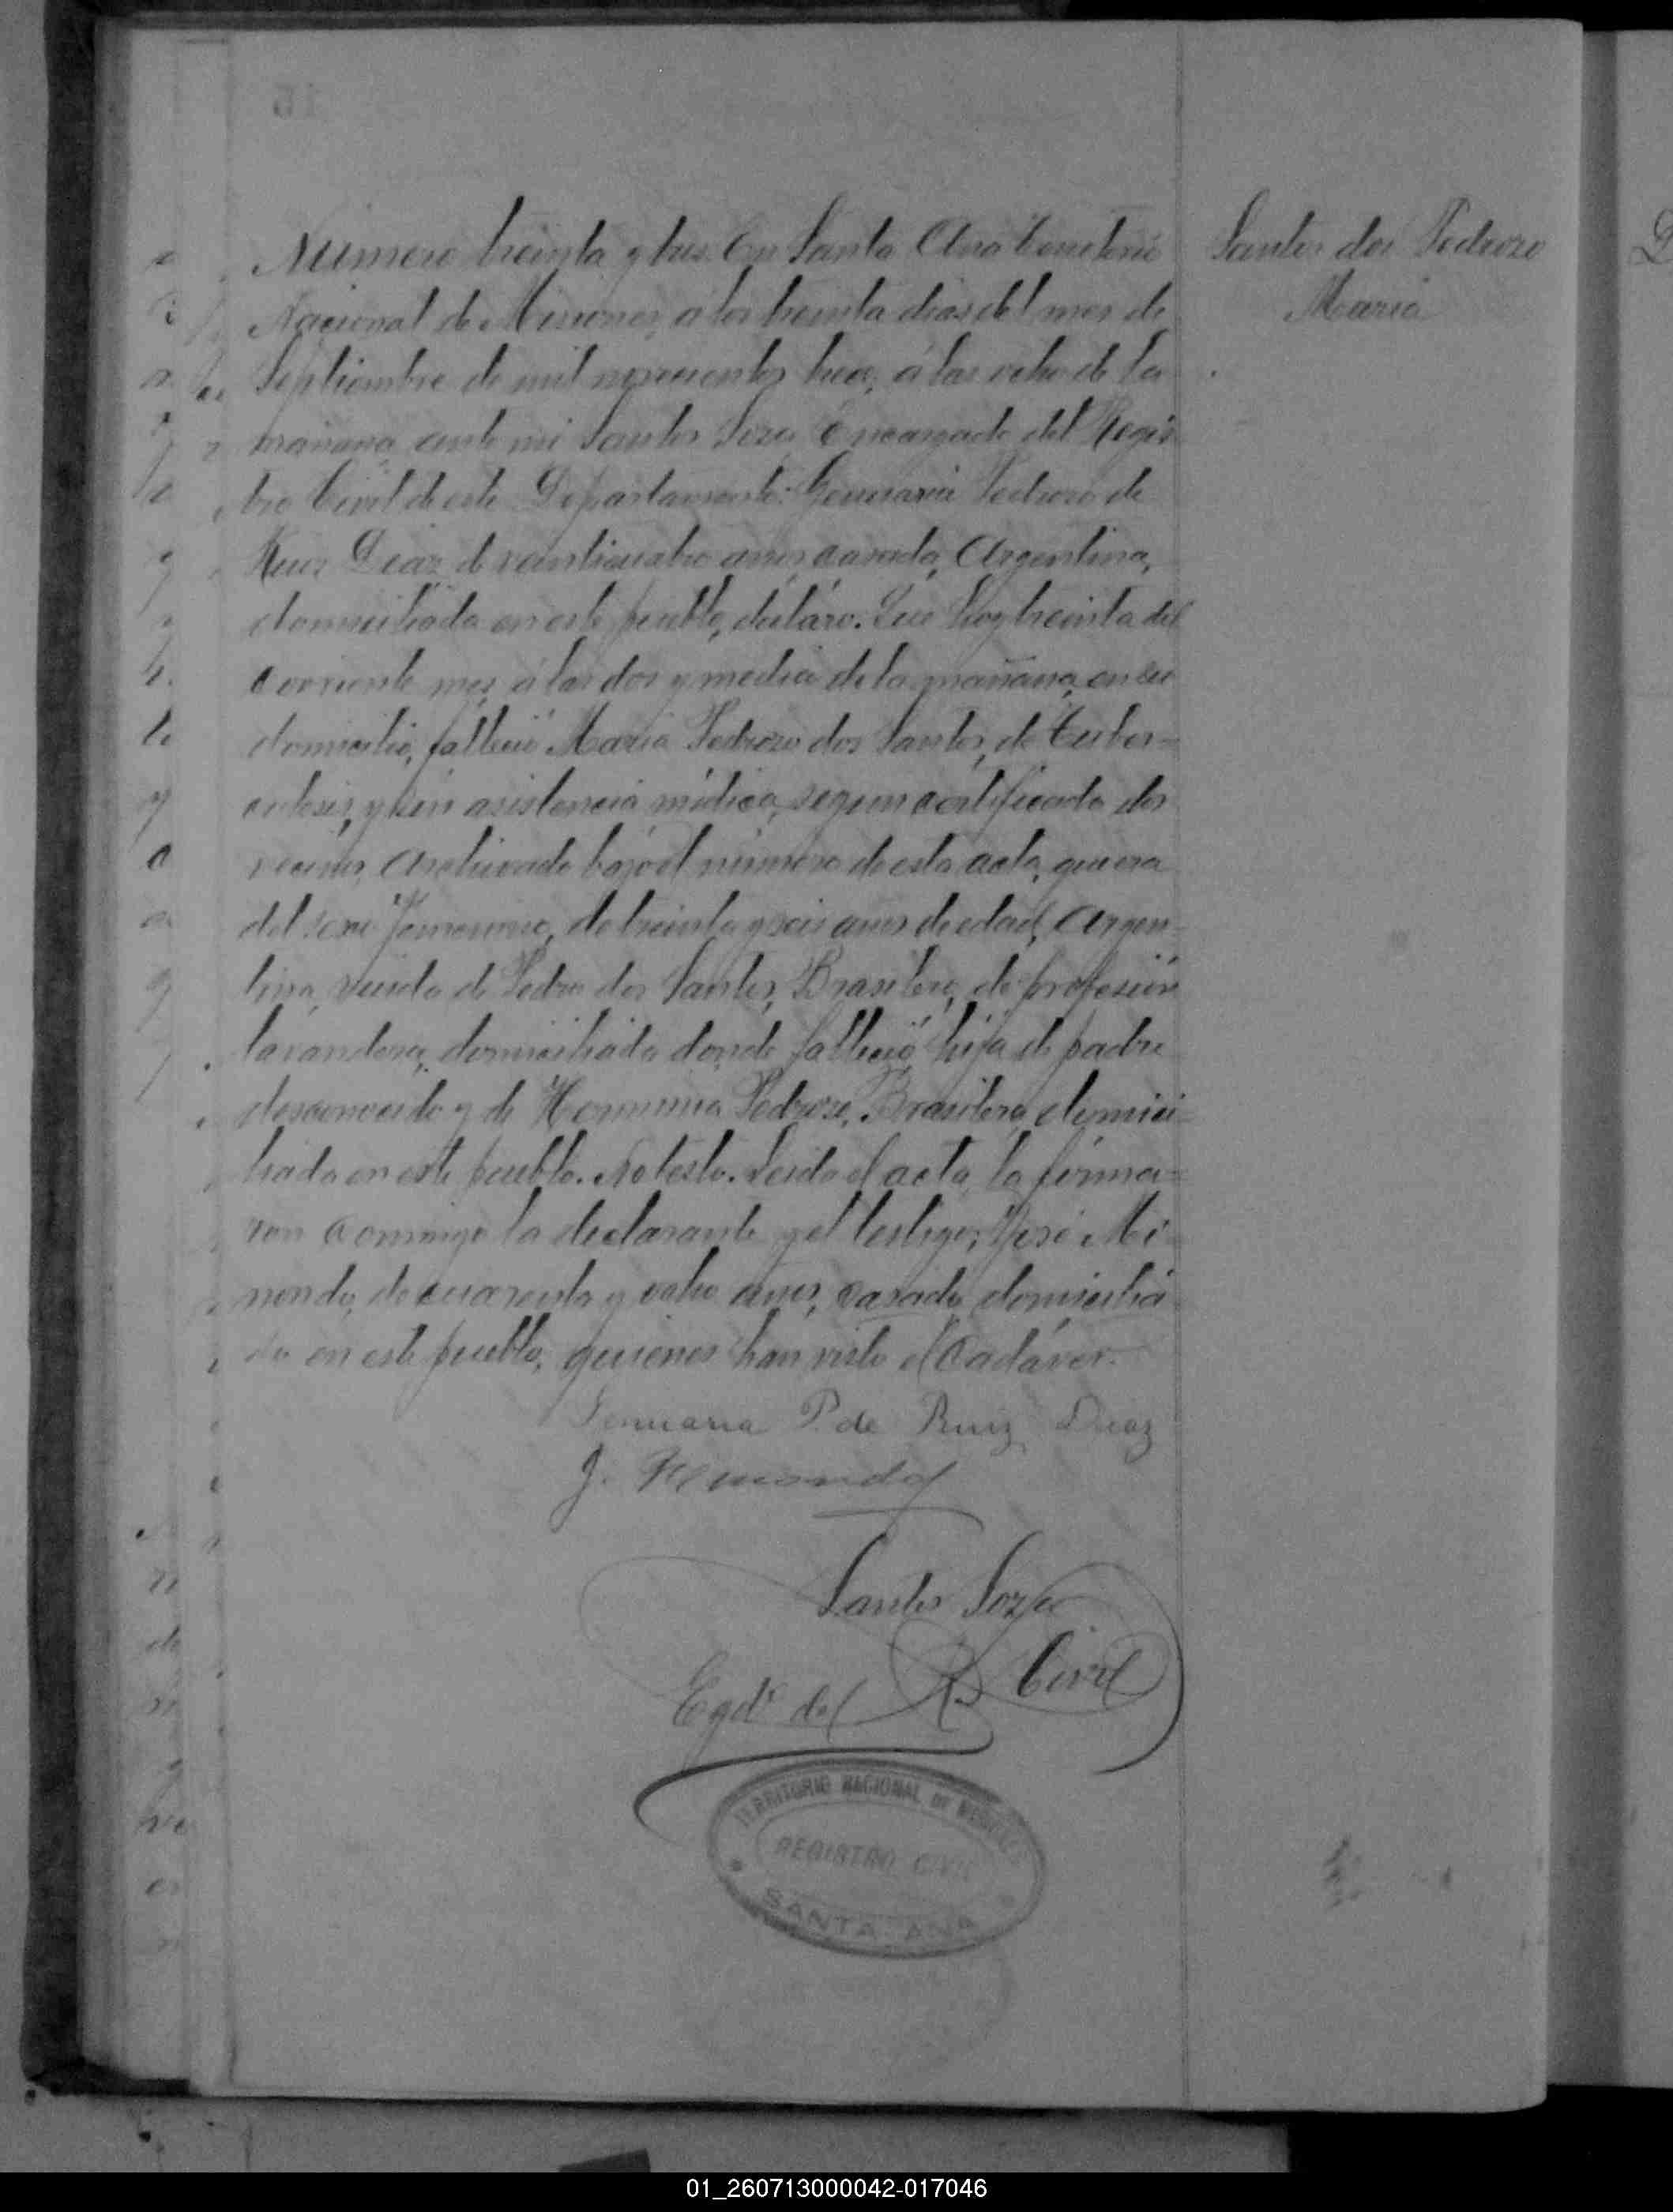 Santos dos Pedrozo
Maria
Número treinta y tres. En Santa Ana Territorio
Nacional de Misiones, a los treinta dias del mes de
Septiembre de mil novecientos trece, á las ocho de la
mañana ante mi Santos Encargado del Regis
tro Civil de este Departamento: Genuaria Pedrozo de
Ruiz Diaz de veinticuatro años, casada, Argentina,
domiciliada en este pueblo, declaro. Que hoy treinta del
corriente mes, á las dos y media de la mañana, en su
domicilio, falleció Maria Pedrozo dos Santos, de Tuber=
culosis, y sin asistencia médica, segun certificado dos
vecinos, archivado bajo el número de esta acta, que era
del sexo femenino, de treinta y seis años de edad, Argen=
tina, viuda de Pedro dos Santos, Brasilero, de profesión
lavandera, domiciliada donde falleció, hija de padre
desconocido y de Pedrozo, Brasilera, domici=
liada en este pueblo. No testo. Leida el acta, la firma=
ron conmigo la declarante y el testigo; José
de cuarenta y ocho años, casado, domicilia
do en este pueblo, quienes han visto el Cadáver.
Genuaria P. de Ruiz Diaz
J.
Santos
Egdo del R. Civil
TERRITORIO NACIONAL DE MISIONES
REGISTRO CIVIL
SANTA ANA
01_260713000042-017046